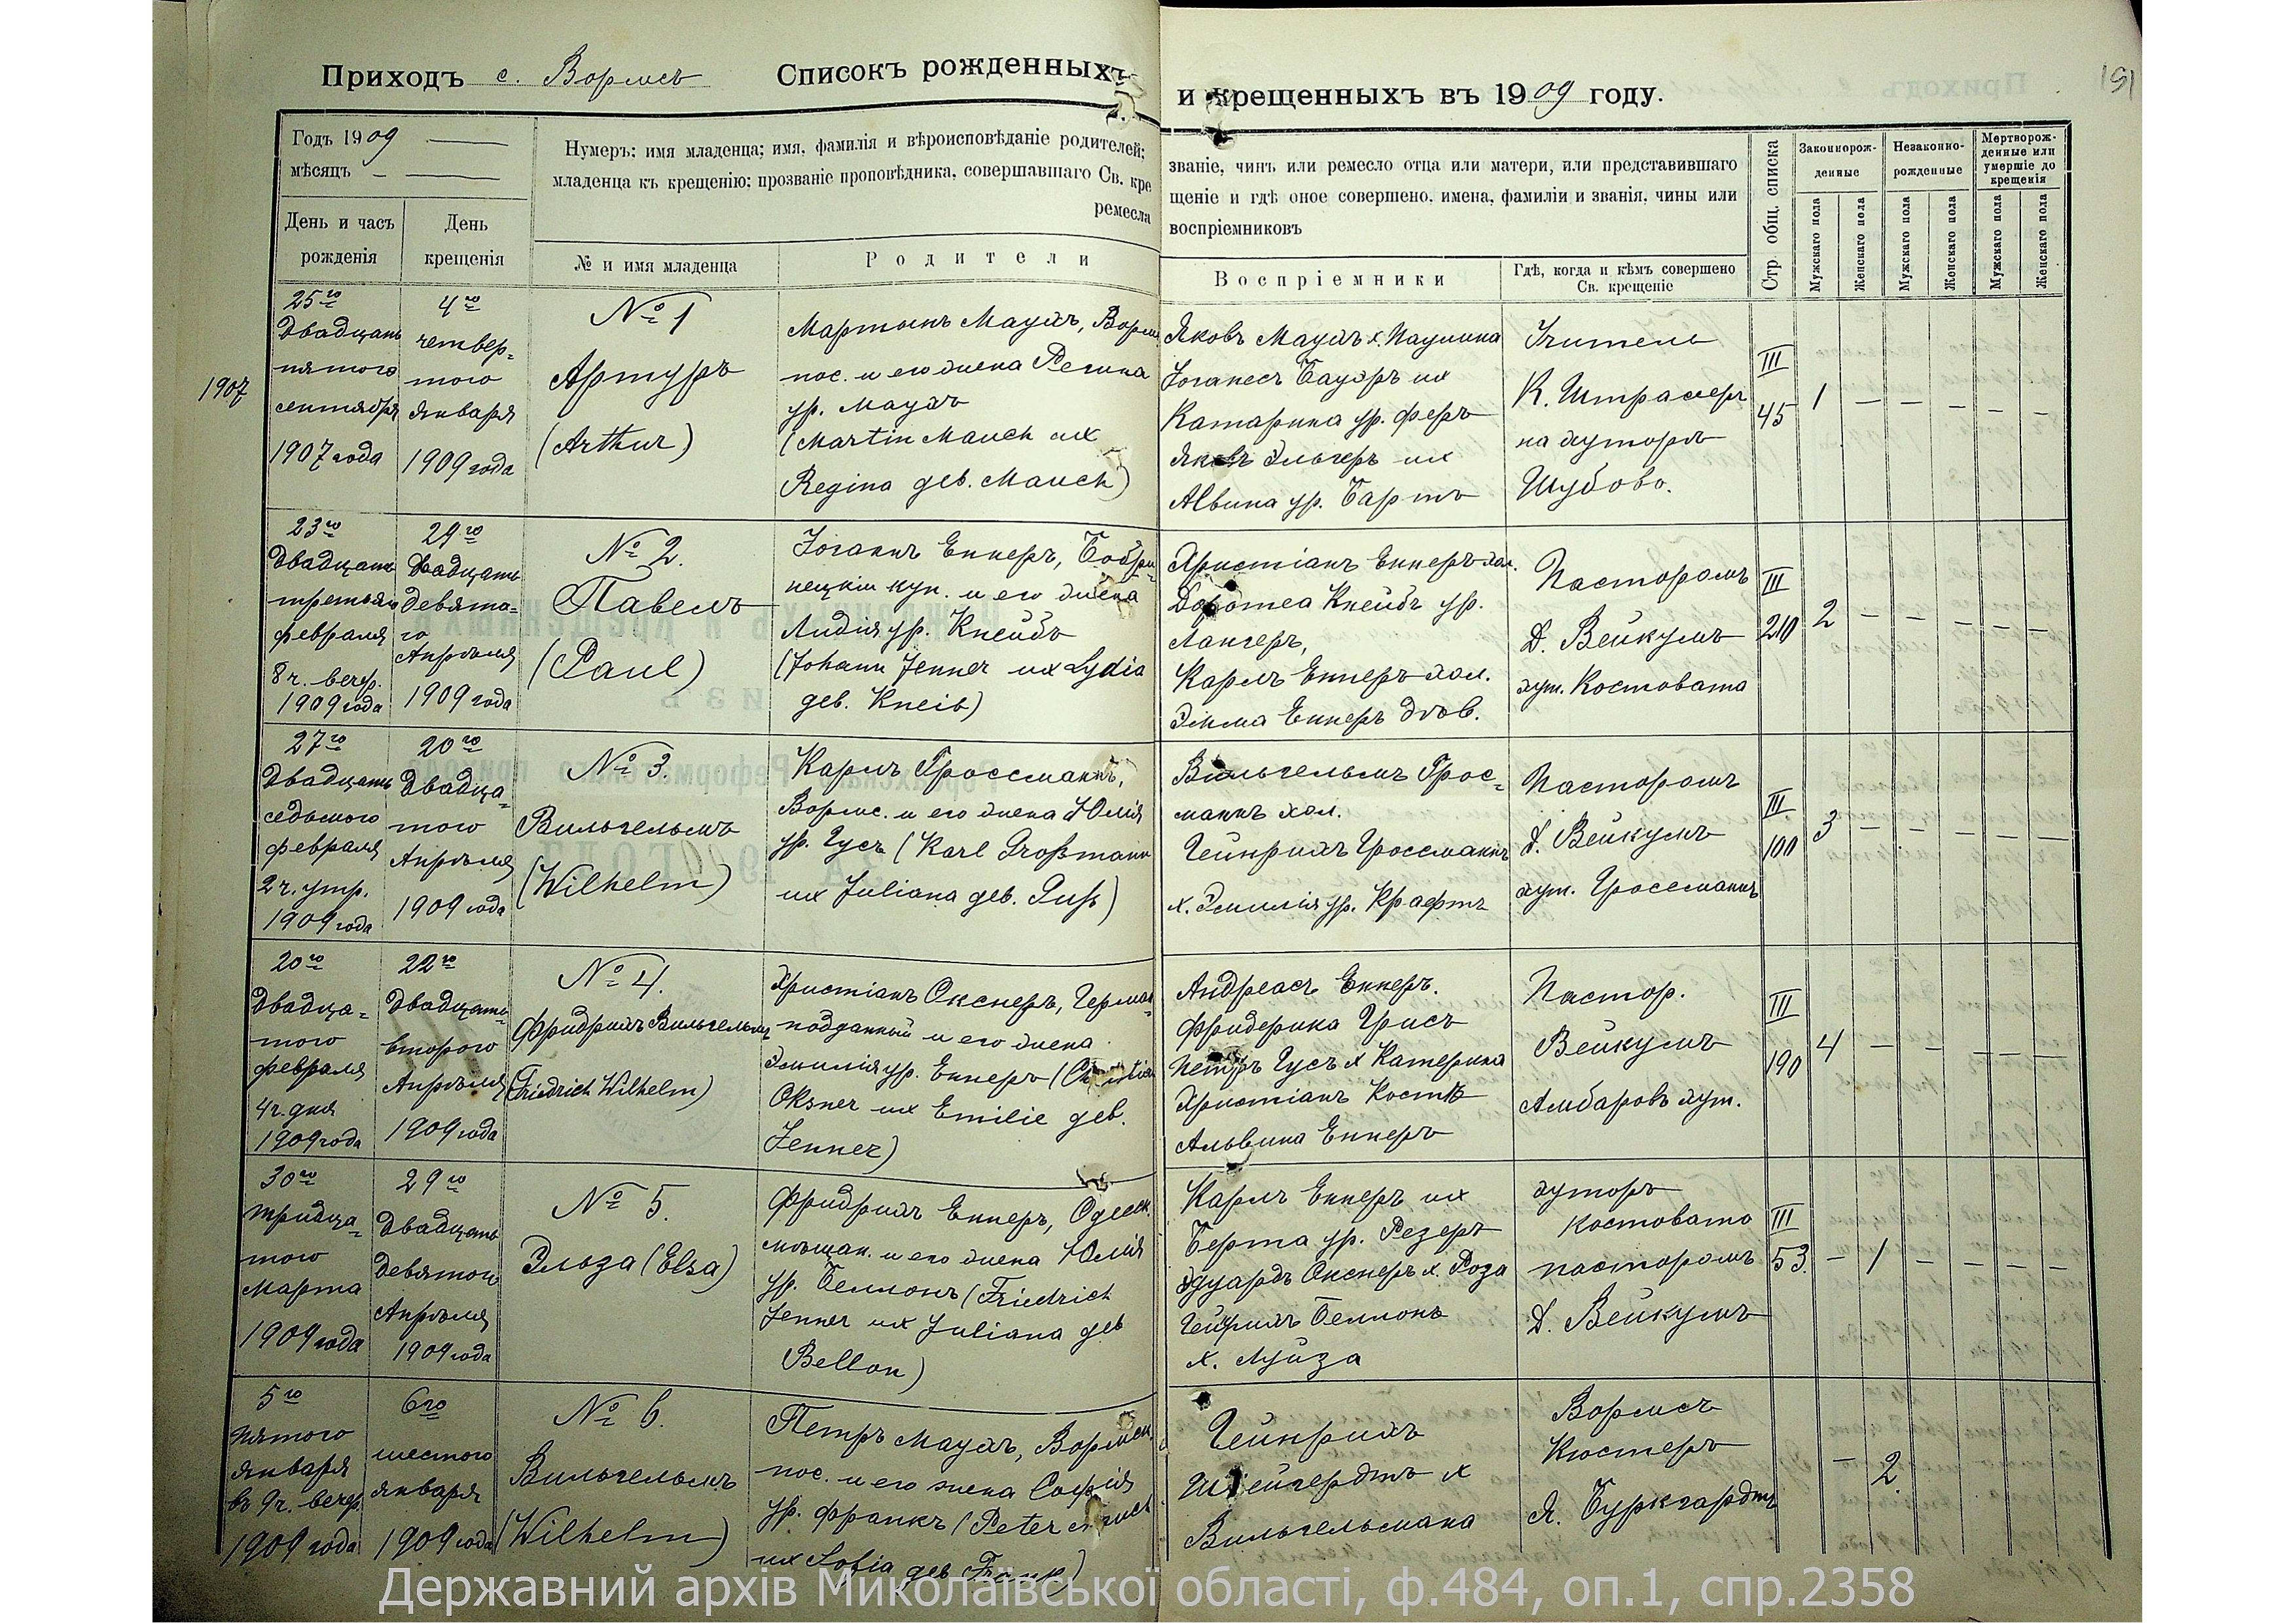 Приходъ с. Вормсъ Списокъ рожденныхъ
и крещенныхъ въ 1909 году.
191
Годъ 1909
мѣсяцъ
Нумеръ: имя младенца; имя, фамилія и вѣроисповѣданіе родителей;
младенца къ крещенію; прозваніе проповѣдника, совершавшаго Св. кре
ремесла
званіе, чинъ или ремесло отца или матери, или представившаго
щеніе и гдѣ оное совершено, имена, фамиліи и званія, чины или
воспріемниковъ
День и часъ
рожденія
День
крещенія
№ и имя младенца
Родители
Воспріемники
Гдѣ, когда и кѣмъ совершено
Св. крещеніе
Стр. общ. списка
Законнорож-
денные
Незаконно-
рожденные
Мертворож-
денные или
умершіе до
крещенія
Мужскаго пола
Женскаго пола
Мужскаго пола
Женскаго пола
Мужскаго пола
Женскаго пола
1907
25го
Двадцать
пятого
сентября
1907 года
4го
четвер-
того
Января
1909 года
№ 1
Артуръ
(Arthur)
Мартынъ Маухъ, Вормс
пос. и его жена Регина
ур. Маухъ
(Martin Mauch их
Regina geb. Mauch)
Яковъ Маухъ х. Паулина
Іоганесъ Бауэръ их
Катарина ур. Феръ
Яковъ Эльгеръ их
Alвина ур. Бартъ
Учитель
К. Штрамеръ
на хуторѣ
Шубово.
III
45
1 — — — — —
23го
Двадцать
третьяго
февраля
8 ч. вечер.
1909 года
29го
Двадцать
девята-
го
Апрѣля
1909 года
№ 2.
Павелъ
(Paul)
Іоганнъ Еннеръ, Бобри-
нецкій куп. и его жена
Лидія ур. Кнейбъ
(Johann Jenner их Lydia
geb. Kneib)
Христіанъ Еннеръ хол.
Доротеа Кнейбъ ур.
Лангеръ,
Карлъ Еннеръ хол.
Эмма Еннеръ дѣв.
Пасторомъ
Д. Вейкумъ
хут. Костовата
III
210
2 — — — — —
27го
Двадцать
седьмого
февраля
2 ч. утр.
1909 года
20го
Двадца-
того
Апрѣля
1909 года
№ 3.
Вильгельмъ
(Wilhelm)
Карлъ Гроссманнъ,
Вормс. и его жена Юлія
ур. Гусъ (Karl Großmann
их Juliana geb. Guß)
Вильгельмъ Грос-
манъ хол.
Гейнрихъ Гроссманнъ
х. Эмилія ур. Крафтъ
Пасторомъ
Д. Вейкумъ
хут. Гроссманнъ
III
100
3 — — — — —
20го
Двадца-
того
февраля
4 ч. дня
1909 года
22го
Двадцать
второго
Апрѣля
1909 года
№ 4.
Фридрихъ Вильгельмъ
(Friedrich Wilhelm)
Христіанъ Окснеръ, Герман-
подданный и его жена
Эмилія ур. Еннеръ (Christian
Oksner их Emilie geb.
Jenner)
Андреасъ Еннеръ.
Фридерика Грисъ
Петръ Гусъ х Катерина
Христіанъ Костъ
Альвина Еннеръ
Пастор.
Вейкумъ
Амбаровъ хут.
III
190
4 — — — — —
30го
тридца-
того
Марта
1909 года
29го
Двадцать
девятого
Апрѣля
1909 года
№ 5.
Эльза (Elsa)
Фридрихъ Еннеръ, Одесск.
мѣщан. и его жена Юлія
ур. Беллонъ (Friedrich
Jenner их Juliana geb
Bellon)
Карлъ Еннеръ их
Берта ур. Резеръ
Эдуардъ Окснеръ х. Роза
Гейнрихъ Беллонъ
х. Луиза
хуторъ
Костовато
пасторомъ
Д. Вейкумъ
III
53.
— 1 — — — —
5го
пятого
января
въ 9 ч. вечер.
1909 года
6го
шестого
января
1909 года
№ 6.
Вильгельмъ
(Wilhelm)
Петръ Маухъ, Вормск.
пос. и его жена Софія
ур. Франкъ (Peter Mauch
их Sofia geb Frank)
Гейнрихъ
Штейгердтъ х
Вильгельмина
Вормсъ
Кюстеръ
Я. Буркгардтъ
— 2.
Державний архів Миколаївської області, ф.484, оп.1, спр.2358